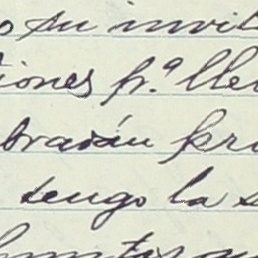 o su invit
iones pr.ª lle
brarán pri
tengo la s